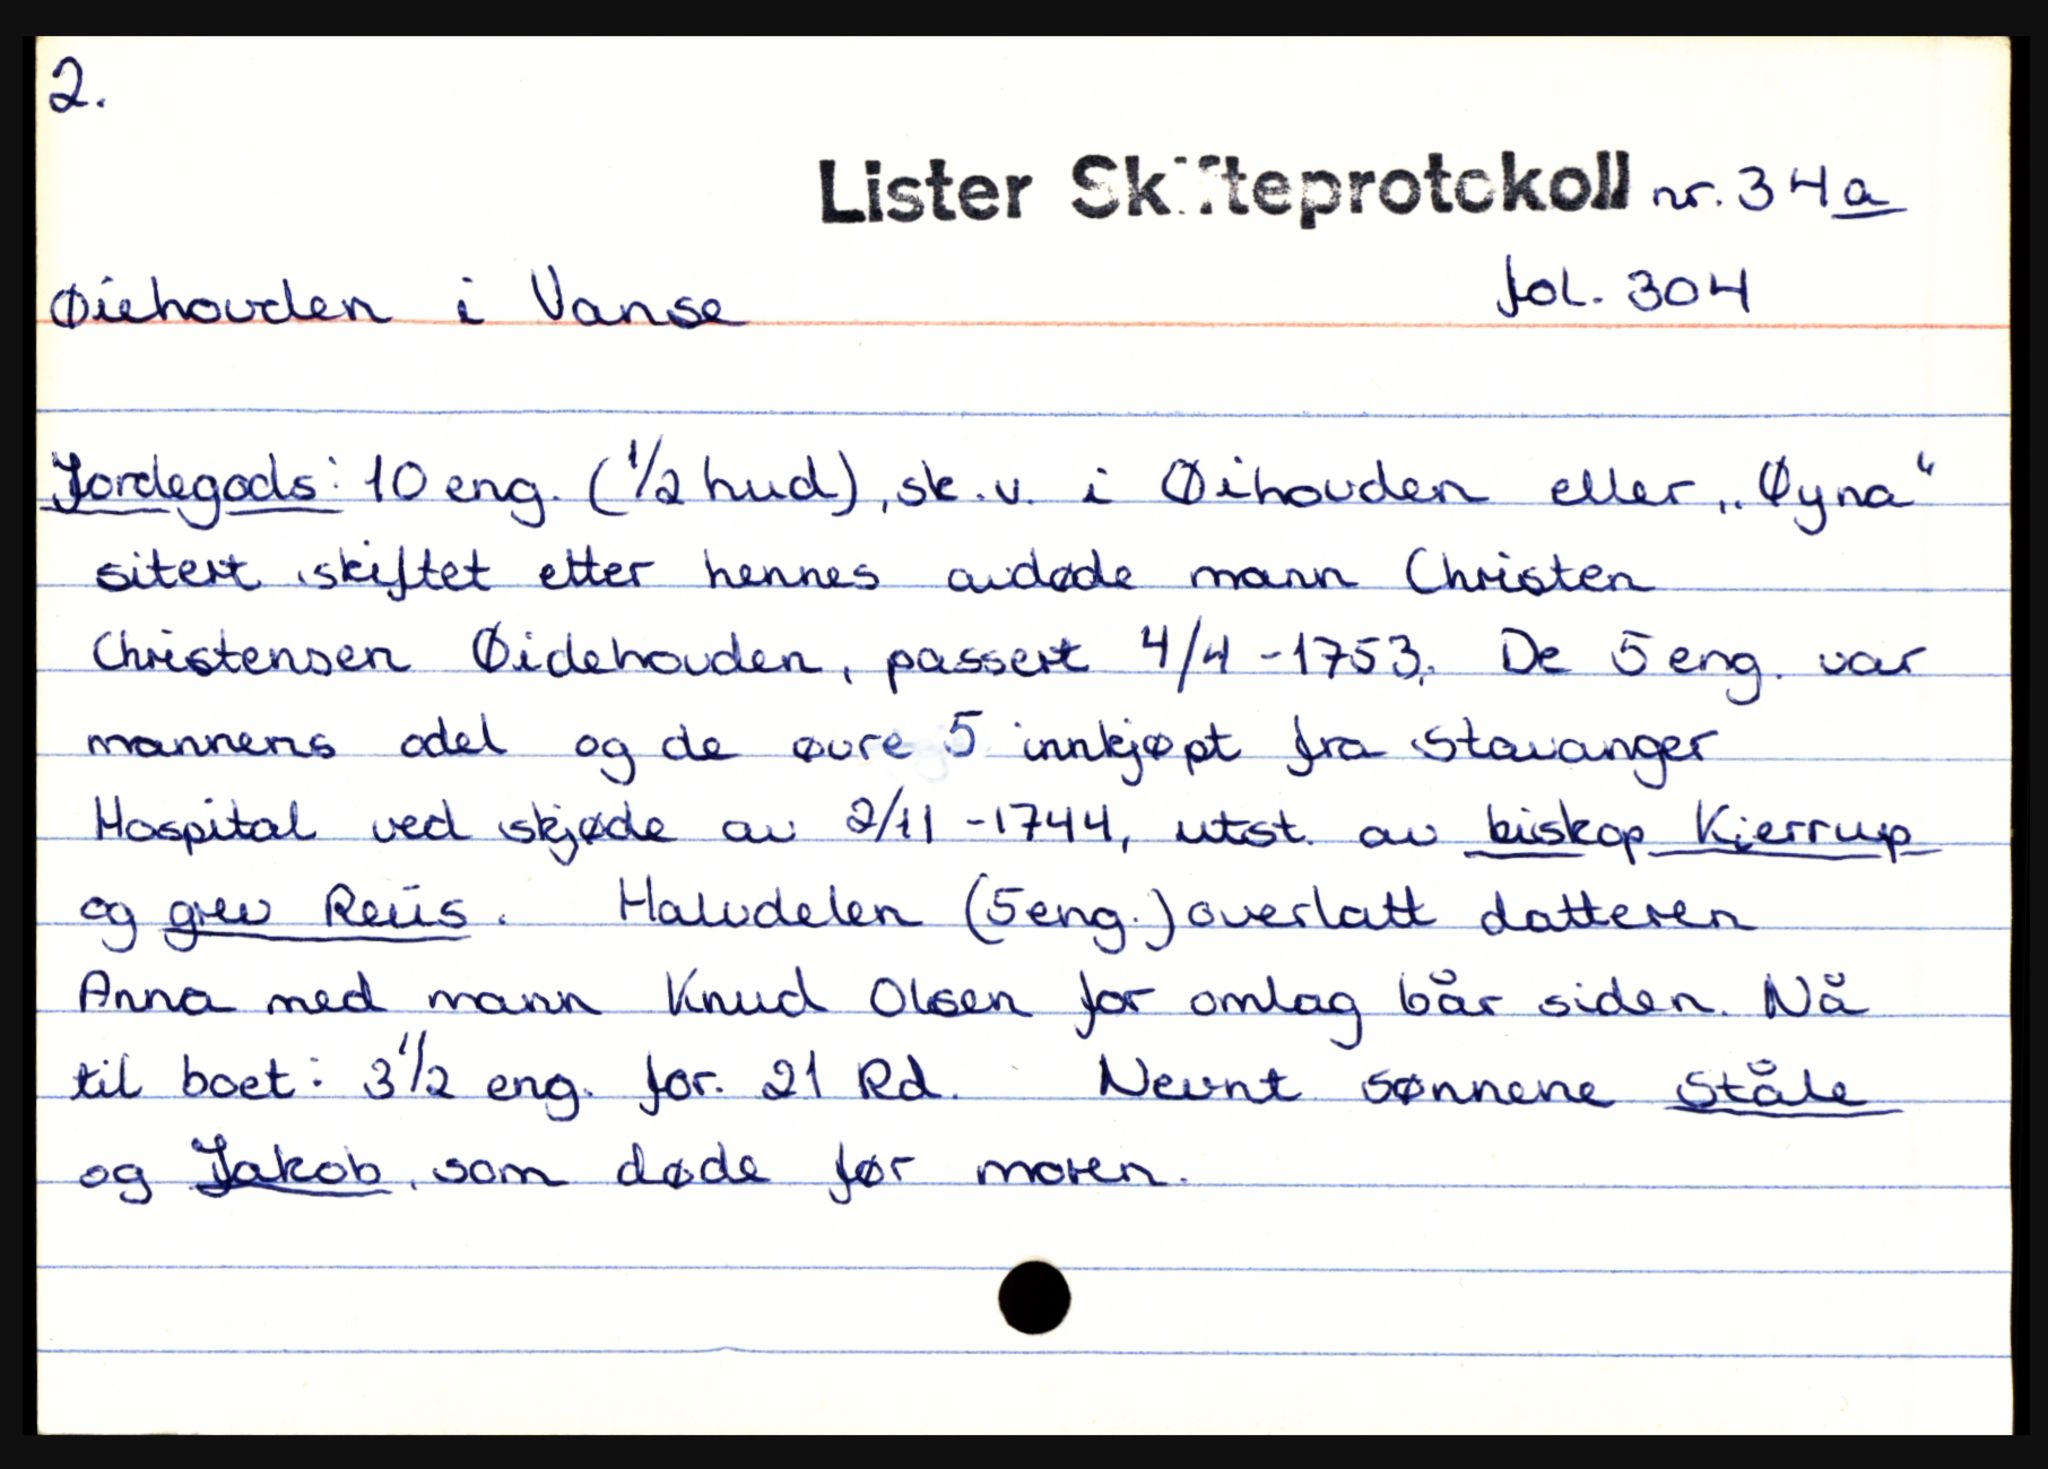 2.
Lister Skifteprotokoll nr. 34a
Øiehovden i Vanse fol. 304
Jordegods: 10 eng. (1/2 hud), sk.v. i Øihovden eller „Øyna“
sitert skiftet etter hennes avdøde mann Christen
Christensen Øidehovden, passert 4/4 - 1753. De 5 eng. var
mannens odel og de øvre 5 innkjøpt fra Stavanger
Hospital ved skjøde av 2/11 - 1744, utst. av biskop Kjerrup
og grev Reüs. Halvdelen (5 eng.) overlatt datteren
Anna med mann Knud Olsen for omlag 6 år siden. Nå
til boet: 3 1/2 eng. for. 21 Rd. Nevnt sønnene Ståle
og Jakob, som døde før moren.